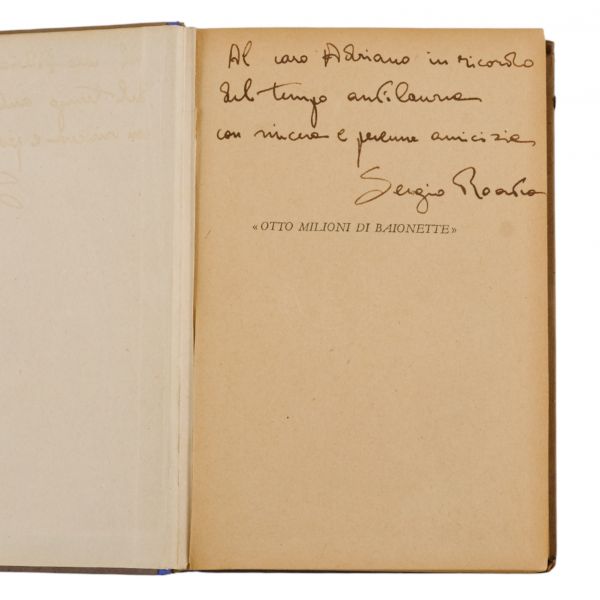 Al caro Adriano in ricordo
del tempo
con sincera e perenne amicizia
Sergio
« OTTO MILIONI DI BAIONETTE »